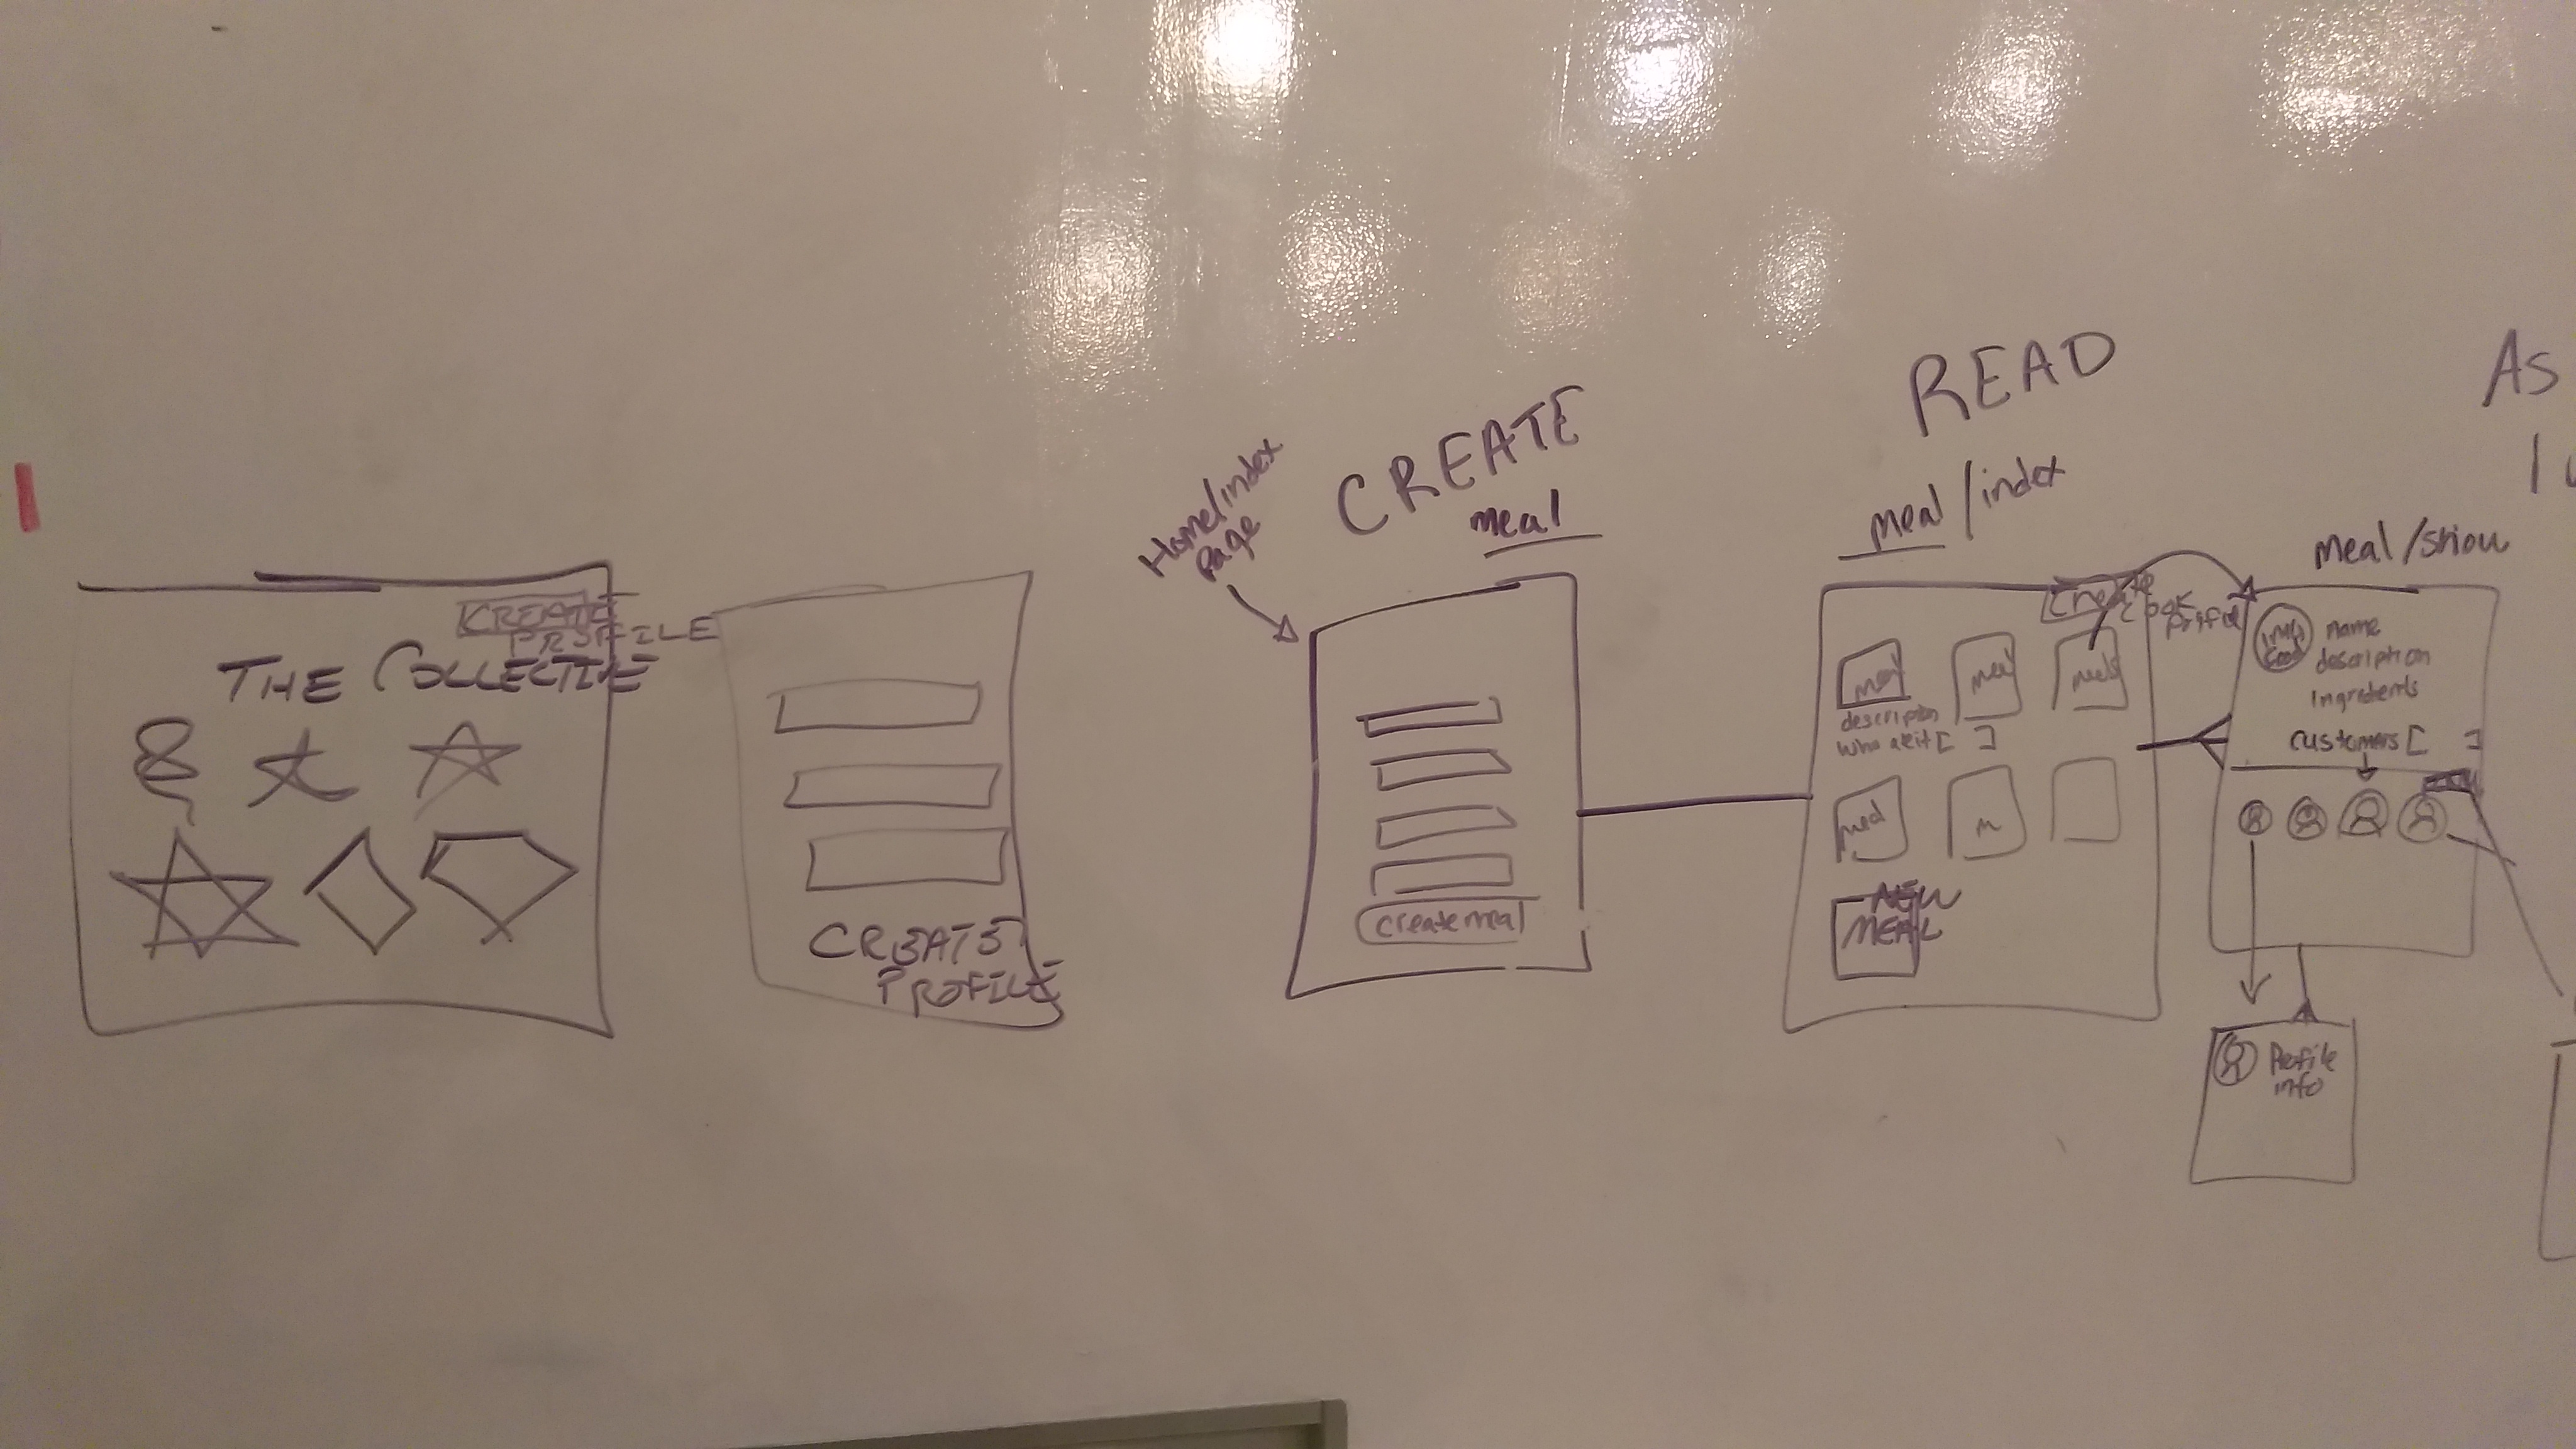 CREATE
PROFILE
THE COLLECTIVE
CREATE
PROFILE
Home/index
Page
CREATE
meal
create meal
READ
meal/index
Create
meal
meal
meals
description
who ate it [ ]
meal
m
NEW
MEAL
meal/show
name
description
Ingredients
customers [ ]
Profile
info
As
I